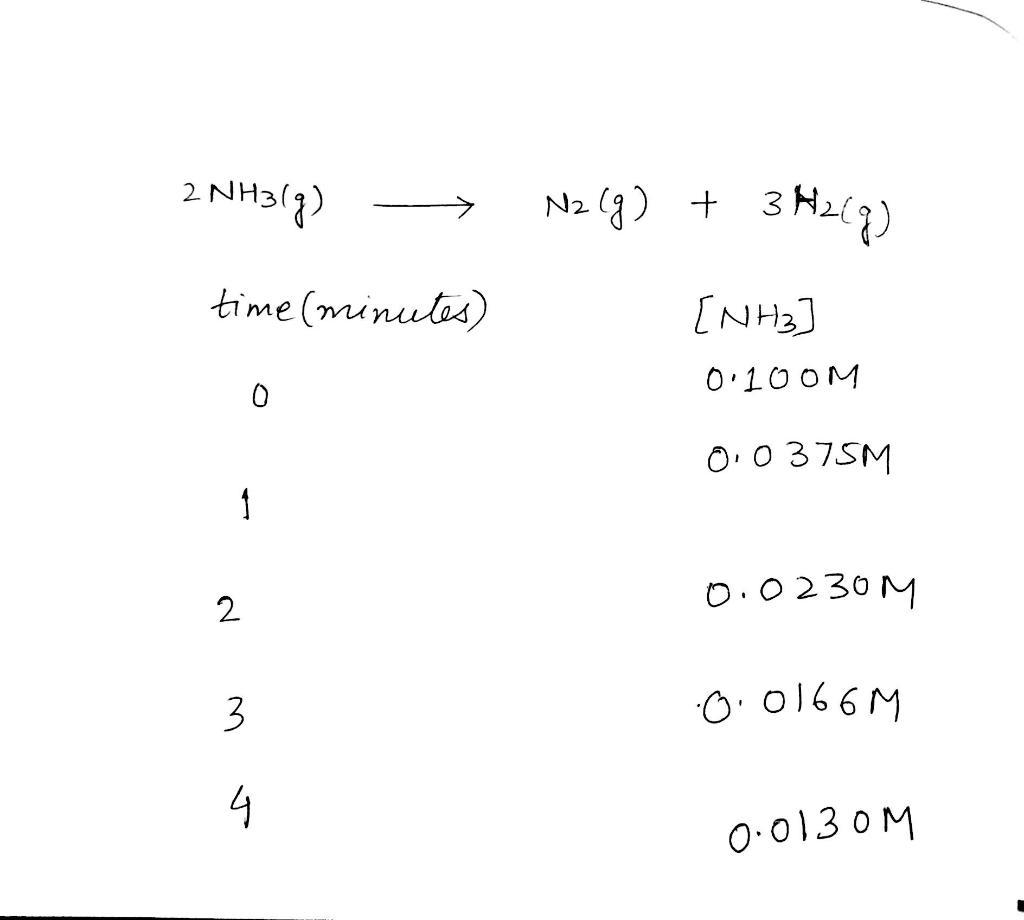 2 NH3(g) → N2 (g) + 3 H2(g)
time (minutes) [NH3]
0 0.100M
1 0.0375M
2 0.0230M
3 0.0166M
4 0.0130M